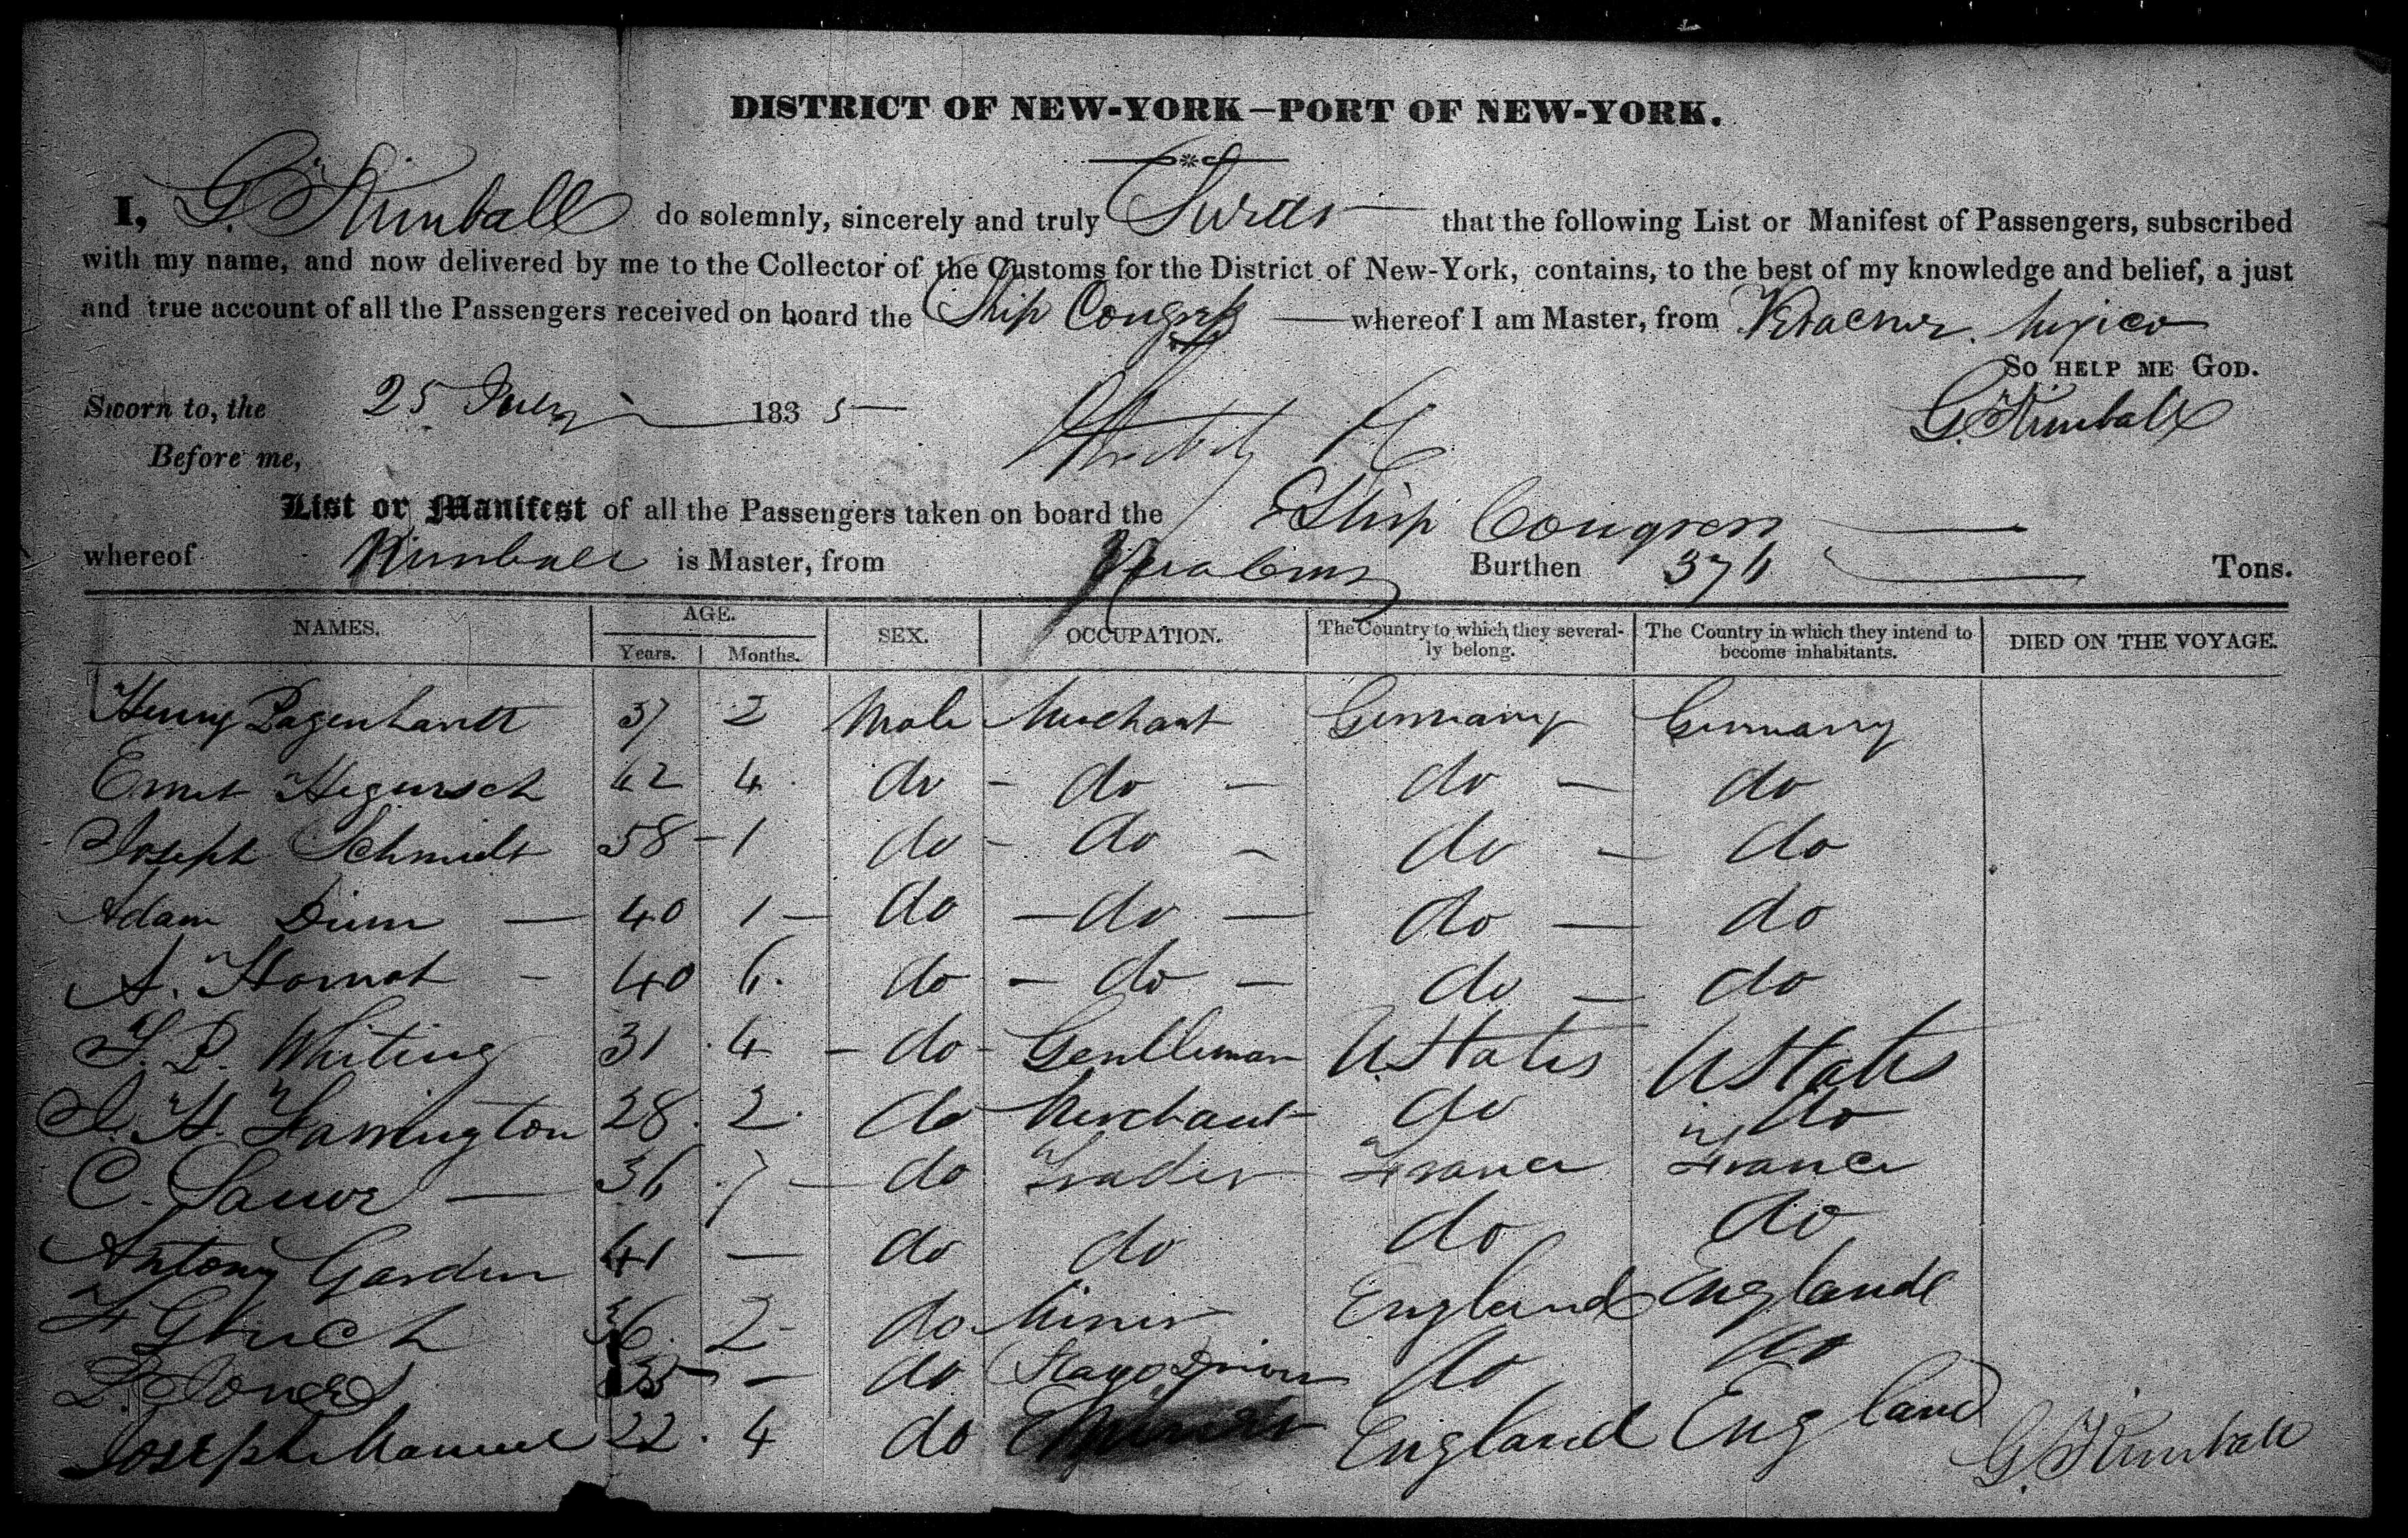 DISTRICT OF NEW-YORK—PORT OF NEW-YORK.
I, G. Kimball do solemnly, sincerely and truly Swear that the following List or Manifest of Passengers, subscribed
with my name, and now delivered by me to the Collector of the Customs for the District of New-York, contains, to the best of my knowledge and belief, a just
and true account of all the Passengers received on board the Ship Congress whereof I am Master, from Veracruz. Mexico
SO HELP ME GOD.
Sworn to, the 25 July 1835 G. Kimball
Before me,
List or Manifest of all the Passengers taken on board the Ship Congress
whereof Kimball is Master, from Vera Cruz Burthen 376 Tons.
NAMES. AGE. Years. Months. SEX. OCCUPATION. The Country to which they several-ly belong. The Country in which they intend to become inhabitants. DIED ON THE VOYAGE.
Henry Pagenhardt 37 2 Male Merchant Germany Germany
Ernst 62 4 do do do do
Joseph Schmidt 58 1 do do do do
Adam 40 1 do do do do
A. 40 6 do do do do
31 4 do Gentleman U. States U States
Farrington 28 2 do Merchant do do
C. 36 7 do Trader France France
Antony Garden 41 — do do do do
F 36 2 do Miner England England
Jones 35 — do Stage Driver do do
Joseph Manuel 22 4 do England England
G. Kimball